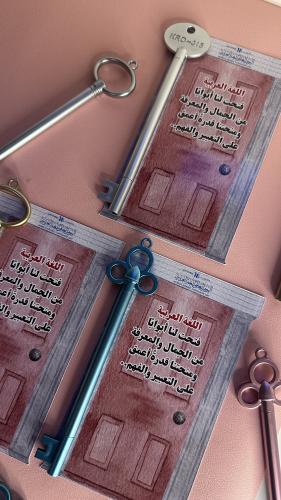 KRD-315
اللغة العربية
فتحت لنا أبوابًا
من الجمال والمعرفة
ومنحتنا قدرة أعمق
على التعبير والفهم..
اللغة العربية
فتحت لنا أبوابًا
من الجمال والمعرفة
ومنحتنا قدرة أعمق
على التعبير والفهم..
اللغة العربية
فتحت لنا أبوابًا
من الجمال والمعرفة
ومنحتنا قدرة أعمق
على التعبير والفهم..